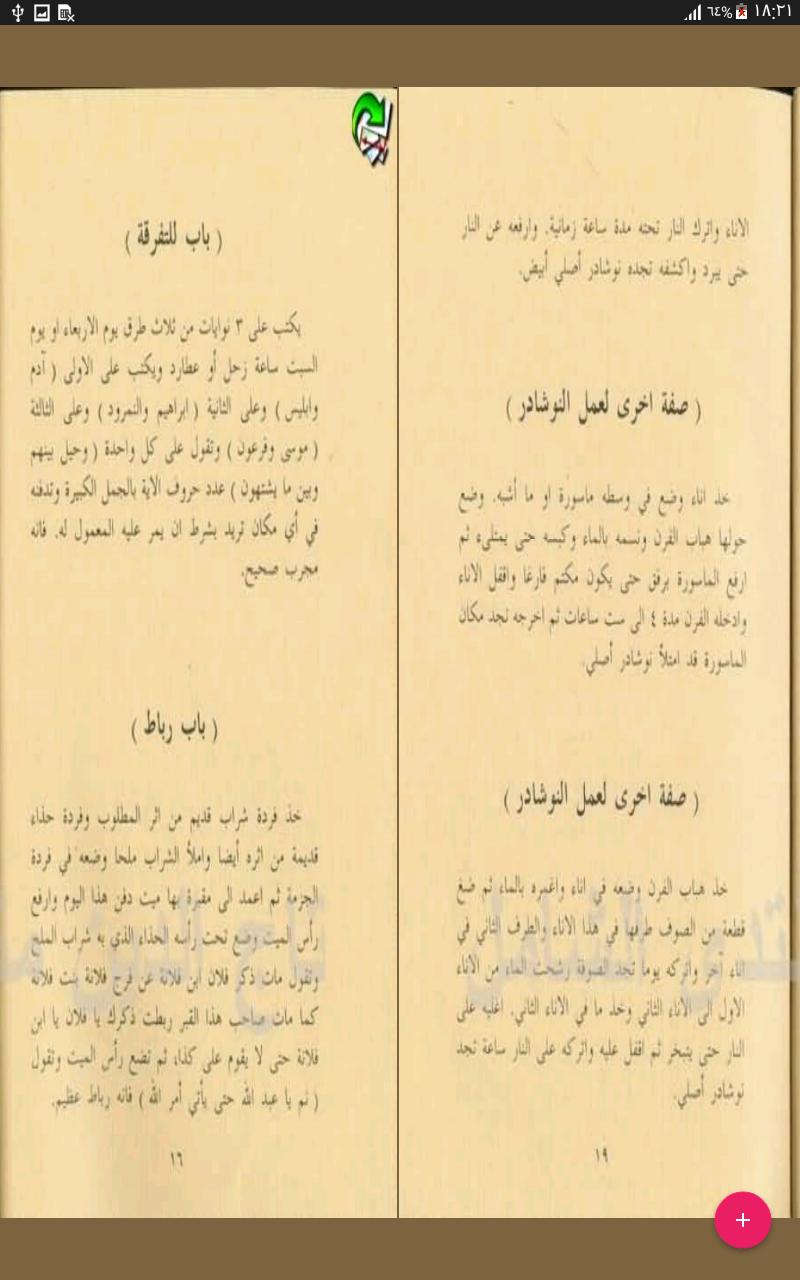 ٦٤%
١٨:٢١
الاناء واترك النار تحته مدة ساعة زمانية. وارفعه عن النار
حتى يبرد واكشفه تجده نوشادر أصلي أبيض.
( صفة اخرى لعمل النوشادر )
خذ اناء وضع في وسطه ماسورة او ما أشبه. وضع
حولها هباب الفرن وتسمه بالماء وكبسه حتى يمتلىء ثم
ارفع الماسورة برفق حتى يكون مكتم فارغا واقفل الاناء
وادخله الفرن مدة ٤ الى ست ساعات ثم اخرجه تجد مكان
الماسورة قد امتلأ نوشادر أصلي.
( صفة اخرى لعمل النوشادر )
خذ هباب الفرن وضعه في اناء واغمره بالماء ثم ضع
قطعة من الصوف طرفها في هذا الاناء والطرف الثاني في
اناء آخر واتركه يوما تجد الصوفة رشحت الماء من الاناء
الاول الى الاناء الثاني وخذ ما في الاناء الثاني. اغليه على
النار حتى يتبخر ثم اقفل عليه واتركه على النار ساعة تجد
نوشادر أصلي.
١٩
( باب للتفرقة )
يكتب على ٣ نوايات من ثلاث طرق يوم الاربعاء او يوم
السبت ساعة زحل أو عطارد ويكتب على الاولى ( آدم
وابليس ) وعلى الثانية ( ابراهيم والنمرود ) وعلى الثالثة
( موسى وفرعون ) وتقول على كل واحدة ( وحيل بينهم
وبين ما يشتهون ) عدد حروف الاية بالجمل الكبيرة وتدفنه
في أي مكان تريد بشرط ان يمر عليه المعمول له. فانه
مجرب صحيح.
( باب رباط )
خذ فردة شراب قديم من اثر المطلوب وفردة حذاء
قديمة من اثره أيضا واملأ الشراب ملحا وضعه في فردة
الجزمة ثم اعمد الى مقبرة بها ميت دفن هذا اليوم وارفع
رأس الميت وضع تحت رأسه الحذاء الذي به شراب الملح
وتقول مات ذكر فلان ابن فلانة عن فرج فلانة بنت فلانة
كما مات صاحب هذا القبر ربطت ذكرك يا فلان يا ابن
فلانة حتى لا يقوم على كذا، ثم تضع رأس الميت وتقول
( نم يا عبد الله حتى يأتي أمر الله ) فانه رباط عظيم.
١٦